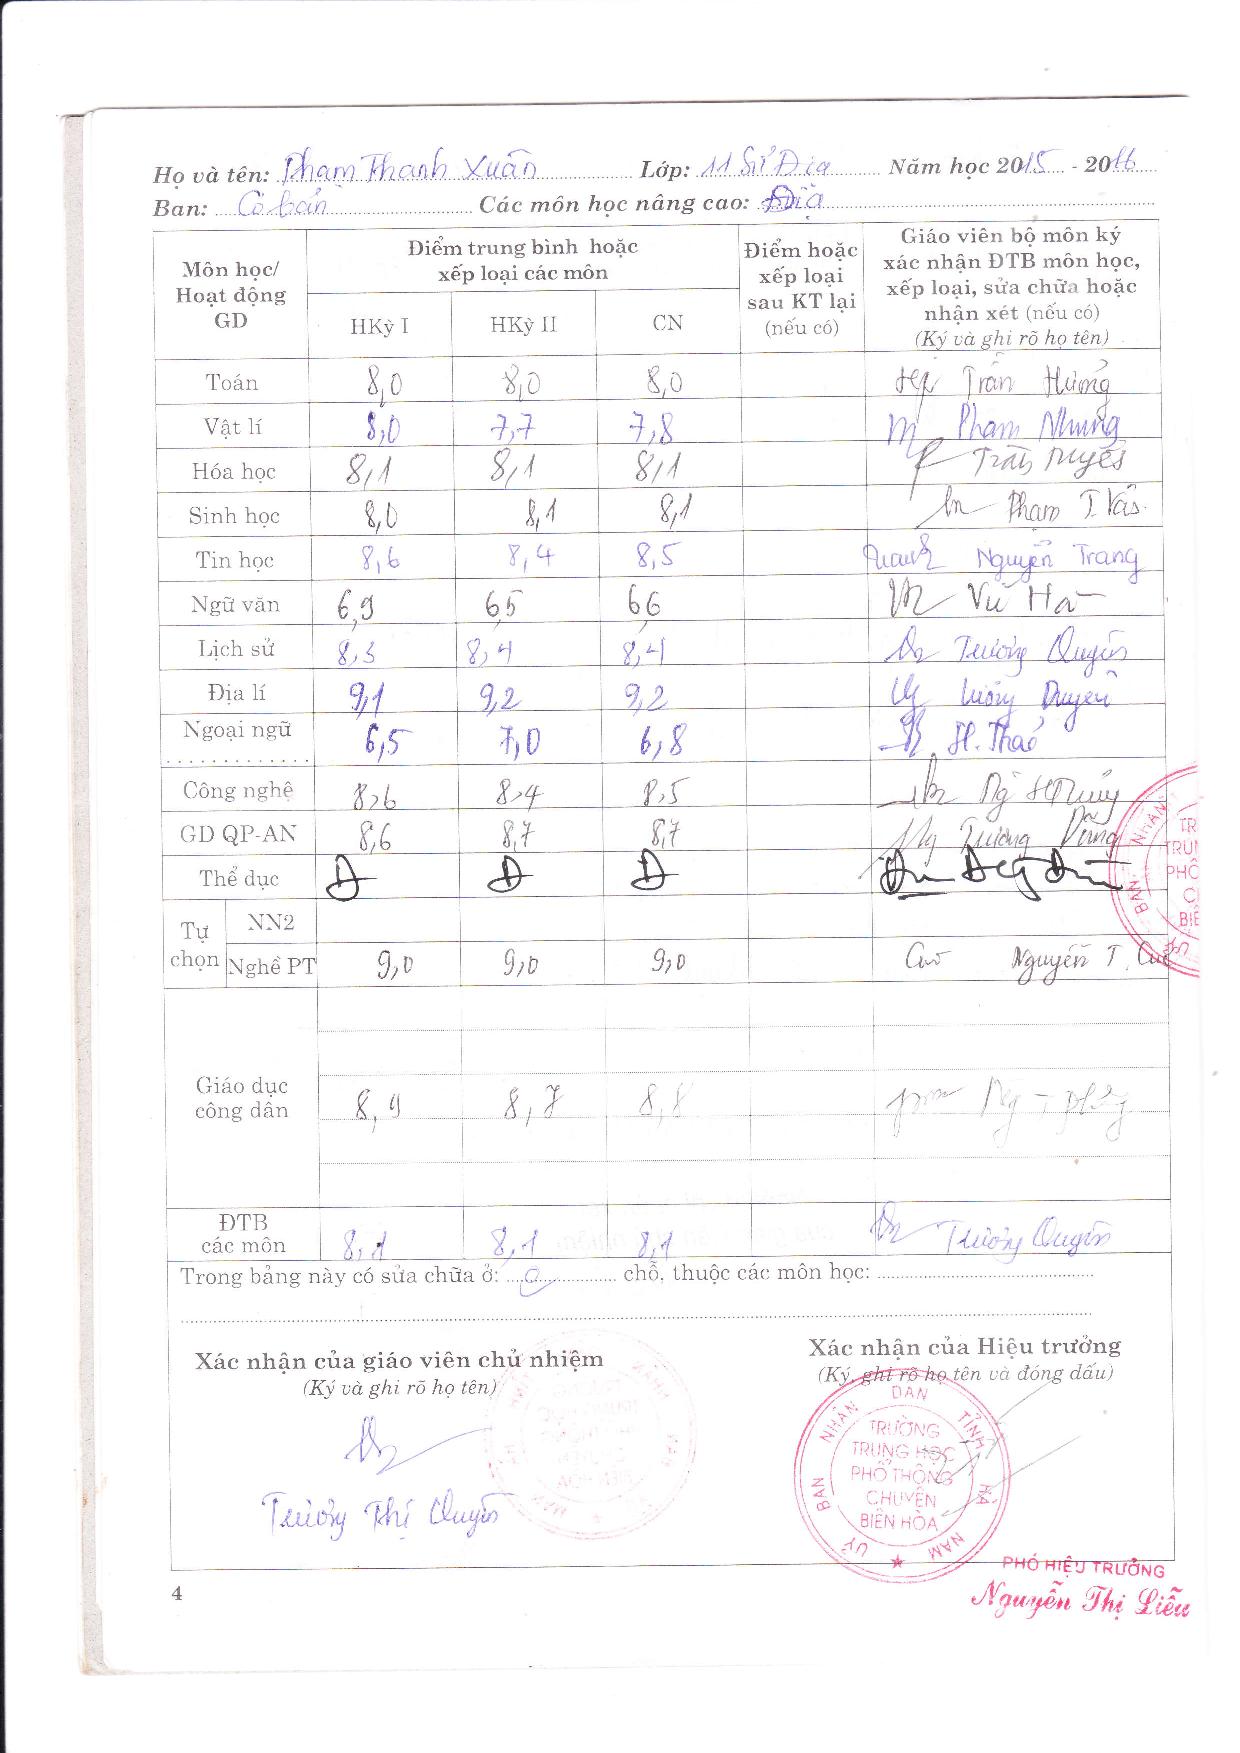 Họ và tên: Phạm Thanh Xuân Lớp: 11 Sử Địa Năm học 2015 - 2016
Ban: Cơ bản Các môn học nâng cao: Địa
Môn học/ Hoạt động GD
Điểm trung bình hoặc xếp loại các môn
HKỳ I HKỳ II CN
Điểm hoặc xếp loại sau KT lại (nếu có)
Giáo viên bộ môn ký xác nhận ĐTB môn học, xếp loại, sửa chữa hoặc nhận xét (nếu có)
(Ký và ghi rõ họ tên)
Toán 8,0 8,0 8,0 Trần Hưởng
Vật lí 8,0 7,7 7,8 Phạm Nhung
Hóa học 8,1 8,1 8,1 Trần
Sinh học 8,0 8,1 8,1 Phạm T.
Tin học 8,6 8,4 8,5 Nguyễn Trang
Ngữ văn 6,9 6,5 6,6 Vũ Hà
Lịch sử 8,3 8,4 8,4 Trương Quyên
Địa lí 9,1 9,2 9,2 Duyên
Ngoại ngữ 6,5 7,0 6,8 H. Thảo
Công nghệ 8,6 8,4 8,5
GD QP-AN 8,6 8,7 8,7 Trương Dũng
Thể dục Đ Đ Đ
Tự chọn
NN2
Nghề PT 9,0 9,0 9,0 Nguyễn T.
Giáo dục công dân 8,9 8,7 8,8
ĐTB các môn 8,1 8,1 8,1 Trương Quyên
Trong bảng này có sửa chữa ở: 0 chỗ, thuộc các môn học:
Xác nhận của giáo viên chủ nhiệm
(Ký và ghi rõ họ tên)
Trương Thị Quyên
Xác nhận của Hiệu trưởng
(Ký, ghi rõ họ tên và đóng dấu)
UỶ BAN NHÂN DÂN TỈNH HÀ NAM
TRƯỜNG
TRUNG HỌC
PHỔ THÔNG
CHUYÊN
BIÊN HÒA
PHÓ HIỆU TRƯỞNG
Nguyễn Thị Liễu
4